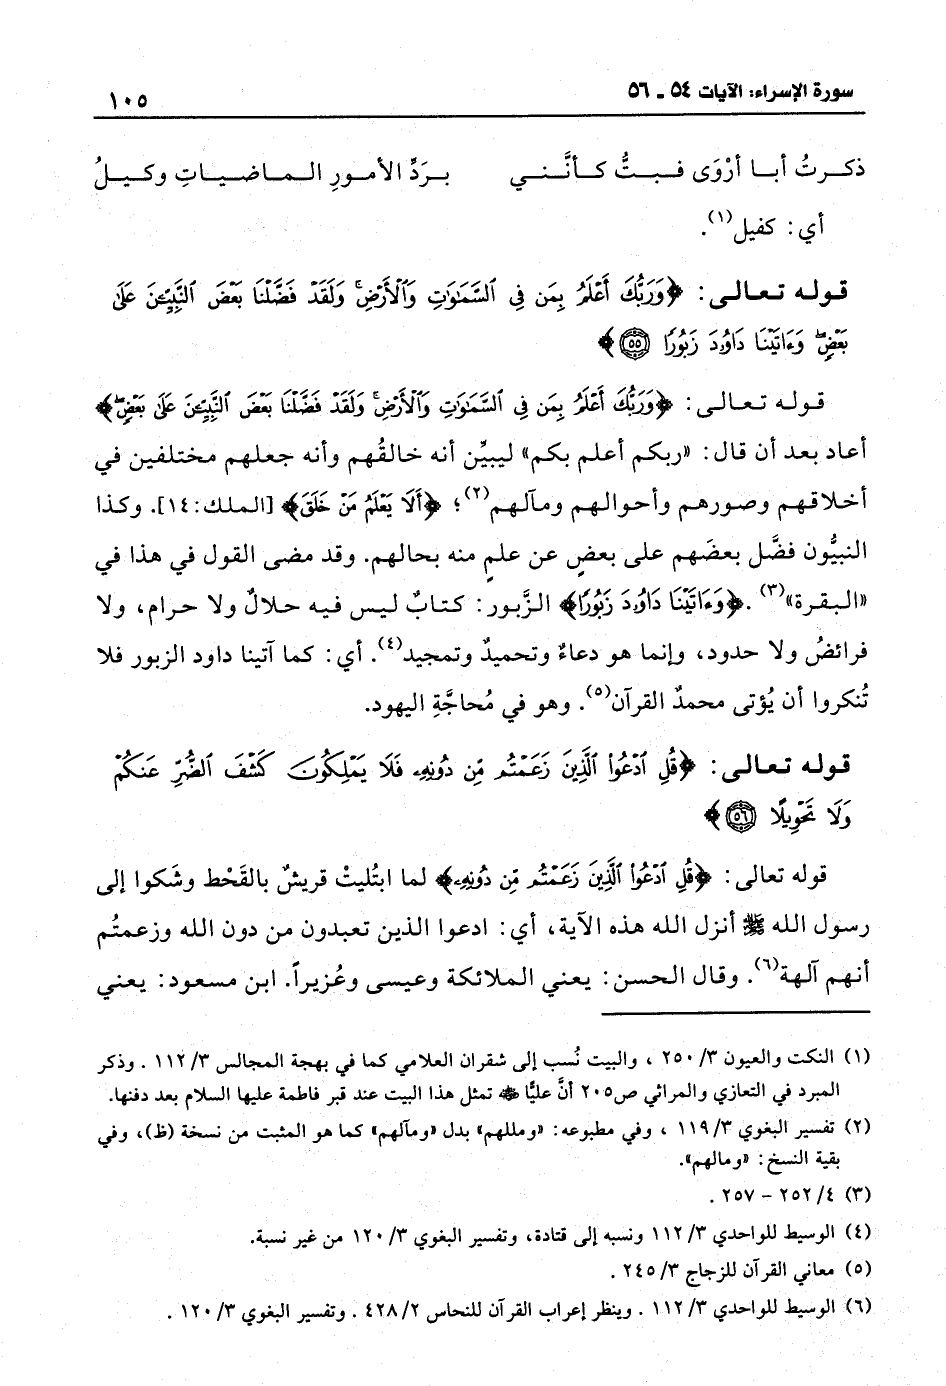 سورة الإسراء: الآيات ٥٤ ـ ٥٦
١٠٥
ذكرتُ أبا أرْوَى فبتُّ كأنَّني برَدِّ الأمورِ الماضياتِ وكيلُ
أي: كفيل(١).
قوله تعالى: ﴿وَرَبُّكَ أَعْلَمُ بِمَن فِي ٱلسَّمَٰوَٰتِ وَٱلْأَرْضِۗ وَلَقَدْ فَضَّلْنَا بَعْضَ ٱلنَّبِيِّـۧنَ عَلَىٰ
بَعْضٍۖ وَءَاتَيْنَا دَاوُۥدَ زَبُورًا ۝٥٥﴾
قوله تعالى: ﴿وَرَبُّكَ أَعْلَمُ بِمَن فِي ٱلسَّمَٰوَٰتِ وَٱلْأَرْضِۗ وَلَقَدْ فَضَّلْنَا بَعْضَ ٱلنَّبِيِّـۧنَ عَلَىٰ بَعْضٍۖ﴾
أعاد بعد أن قال: «ربكم أعلم بكم» ليبيِّن أنه خالقُهم وأنه جعلهم مختلفين في
أخلاقهم وصورهم وأحوالهم ومآلهم(٢)؛ ﴿أَلَا يَعْلَمُ مَنْ خَلَقَ﴾ [الملك: ١٤]. وكذا
النبيُّون فضَّل بعضَهم على بعضٍ عن علمٍ منه بحالهم. وقد مضى القول في هذا في
«البقرة»(٣). ﴿وَءَاتَيْنَا دَاوُۥدَ زَبُورًا﴾ الزَّبور: كتابٌ ليس فيه حلالٌ ولا حرام، ولا
فرائضُ ولا حدود، وإنما هو دعاءٌ وتحميدٌ وتمجيد(٤). أي: كما آتينا داود الزبور فلا
تُنكروا أن يُؤتى محمدٌ القرآن(٥). وهو في مُحاجَّةِ اليهود.
قوله تعالى: ﴿قُلِ ٱدْعُواْ ٱلَّذِينَ زَعَمْتُم مِّن دُونِهِۦ فَلَا يَمْلِكُونَ كَشْفَ ٱلضُّرِّ عَنكُمْ
وَلَا تَحْوِيلًا ۝٥٦﴾
قوله تعالى: ﴿قُلِ ٱدْعُواْ ٱلَّذِينَ زَعَمْتُم مِّن دُونِهِۦ﴾ لما ابتُليتْ قريشٌ بالقَحْط وشَكوا إلى
رسول الله ﷺ أنزل الله هذه الآية، أي: ادعوا الذين تعبدون من دون الله وزعمتُم
أنهم آلهة(٦). وقال الحسن: يعني الملائكة وعيسى وعُزيراً. ابن مسعود: يعني
(١) النكت والعيون ٣/ ٢٥٠ ، والبيت نُسب إلى شقران العلامي كما في بهجة المجالس ٣/ ١١٢ . وذكر
المبرد في التعازي والمراثي ص٢٠٥ أنَّ عليًّا ﵁ تمثل هذا البيت عند قبر فاطمة عليها السلام بعد دفنها.
(٢) تفسير البغوي ٣/ ١١٩ ، وفي مطبوعه: «ومللهم» بدل «ومآلهم» كما هو المثبت من نسخة (ظ)، وفي
بقية النسخ: «ومالهم».
(٣) ٤/ ٢٥٢ – ٢٥٧ .
(٤) الوسيط للواحدي ٣/ ١١٢ ونسبه إلى قتادة، وتفسير البغوي ٣/ ١٢٠ من غير نسبة.
(٥) معاني القرآن للزجاج ٣/ ٢٤٥ .
(٦) الوسيط للواحدي ٣/ ١١٢ . وينظر إعراب القرآن للنحاس ٢/ ٤٢٨ . وتفسير البغوي ٣/ ١٢٠ .